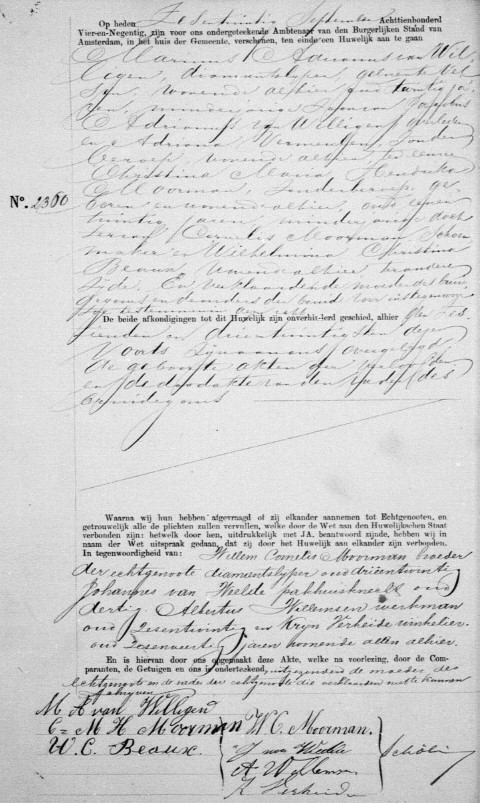 Op heden Zesentwintig September Achttienhonderd
Vier-en-Negentig, zijn voor ons ondergeteekende Ambtenaar van den Burgerlijken Stand van
Amsterdam, in het huis der Gemeente, verschenen, ten einde een Huwelijk aan te gaan
Marinus Adrianus van Wil-
ligen, diamantslyper, geboren te
wonende alhier, oud twintig ja-
ren, minderjarige zoon van Jacobus
Adrianus van Willigen, overleden
en Adriana Vermeulen, zonder
beroep, wonende alhier, ter eenre
Christina Maria Hendrika
Moorman, zonder beroep, ge-
boren en wonende alhier, oud
jaren, minderjarige doch-
ter van Cornelis Moorman, schoen
maker en Wilhelmina Christina
Beaux, wonende alhier, ter andere
zijde. En verklaarden de moeder des bruide-
goms en de ouders der bruid
toe te stemmen
Nº. 2360
De beide afkondigingen tot dit Huwelijk zijn onverhinderd geschied, alhier den zes
tienden en drieentwintigsten dezer
Voorts zijn aan ons overgelegd,
de geboorte akten der
en de doodakte van den vader des
bruidegoms
Waarna wij hun hebben afgevraagd of zij elkander aannemen tot Echtgenooten, en
getrouwelijk alle de plichten zullen vervullen, welke door de Wet aan den Huwelijkschen Staat
verbonden zijn: hetwelk door hen, uitdrukkelijk met JA, beantwoord zijnde, hebben wij in
naam der Wet uitspraak gedaan, dat zij door het Huwelijk aan elkander zijn verbonden.
In tegenwoordigheid van: Willem Cornelis Moorman, broeder
der echtgenote, diamantslyper, oud drieentwintig
Johannes van Heelde pakhuisknecht oud
dertig, Albertus Willemsen, werkman
oud zesentwintig en Kryn Verheide winkelier
oud zesenveertig jaren wonende allen alhier.
En is hiervan door ons opgemaakt deze Akte, welke na voorlezing, door de Com-
paranten, de Getuigen en ons is onderteekend, uitgezonderd de moeder des
echtgenoot en de vader der echtgenote die verklaarden niet te kunnen
schrijven
M. A van Willigen
C= M. H. Moorman W. C. Moorman.
W. C. Beaux. J van Heelde
A Willemsen
K Verheide